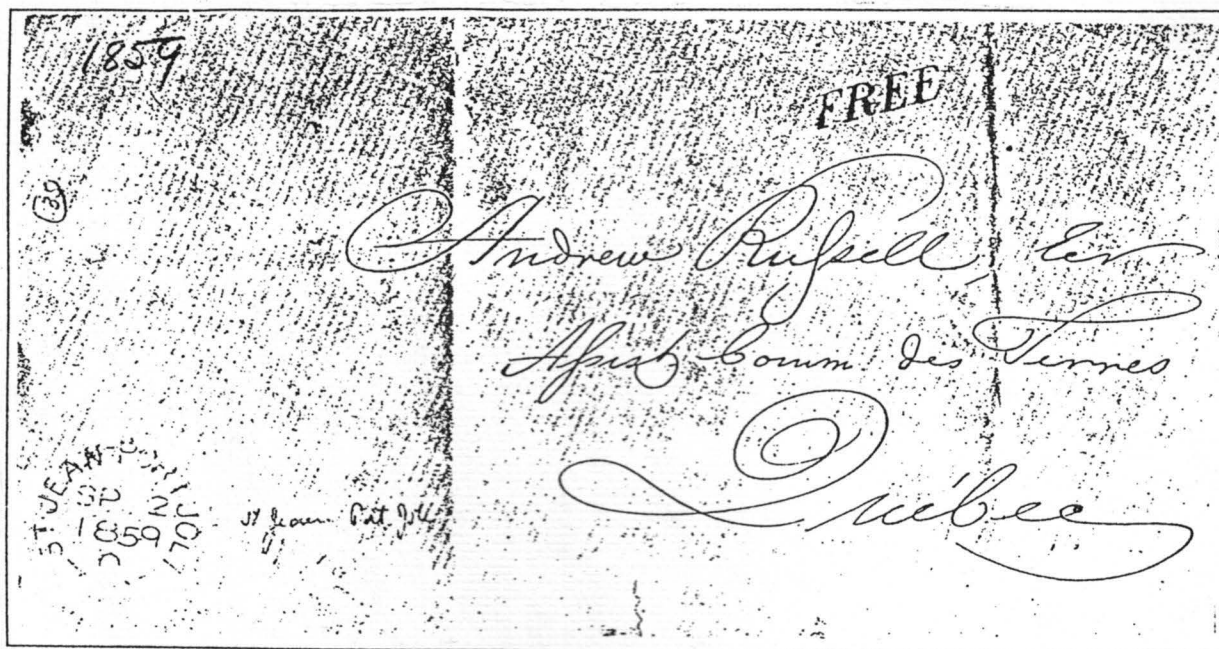 1859
FREE
Andrew Russell, Ecr
Assist Comm des Terres
Québec
ST JEAN-PORT JOLI
SP 2
1859
St Jean Port Joli